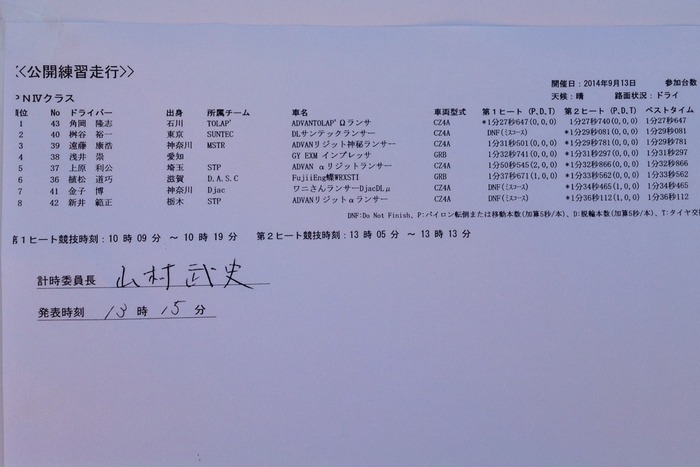 <<公開練習走行>>
開催日：2014年9月13日 参加台数
PNⅣクラス 天候：晴 路面状況：ドライ
順位 No ドライバー 出身 所属チーム 車名 車両型式 第1ヒート (P,D,T) 第2ヒート (P,D,T) ベストタイム
1 43 角岡 隆志 石川 TOLAP' ADVANTOLAP'Ωランサ CZ4A *1分27秒647(0,0,0) 1分27秒740(0,0,0) 1分27秒647
2 40 桝谷 裕一 東京 SUNTEC DLサンテックランサー CZ4A DNF(ミスコース) *1分29秒081(0,0,0) 1分29秒081
3 39 遠藤 康浩 神奈川 MSTR ADVANリジット神秘ランサー CZ4A 1分31秒501(0,0,0) *1分29秒781(0,0,0) 1分29秒781
4 38 浅井 崇 愛知 GY EXM インプレッサ GRB 1分32秒741(0,0,0) *1分31秒297(0,0,0) 1分31秒297
5 37 上原 利公 埼玉 STP ADVAN αリジットランサー CZ4A 1分50秒545(2,0,0) *1分32秒866(0,0,0) 1分32秒866
6 36 植松 道巧 滋賀 D.A.S.C FujiiEng蝶WRXSTI GRB 1分37秒671(1,0,0) *1分33秒562(0,0,0) 1分33秒562
7 41 金子 博 神奈川 Djac ワニさんランサーDjacDLμ CZ4A DNF(ミスコース) *1分34秒465(1,0,0) 1分34秒465
8 42 新井 範正 栃木 STP ADVANリジットαランサー CZ4A DNF(ミスコース) *1分36秒112(1,0,0) 1分36秒112
DNF:Do Not Finish、P:パイロン転倒または移動本数(加算5秒/本)、D:脱輪本数(加算5秒/本)、T:タイヤ交
第1ヒート競技時刻：10 時 09 分 ～ 10 時 19 分 第2ヒート競技時刻：13 時 05 分 ～ 13 時 13 分
計時委員長 山村 武史
発表時刻 13 時 15 分